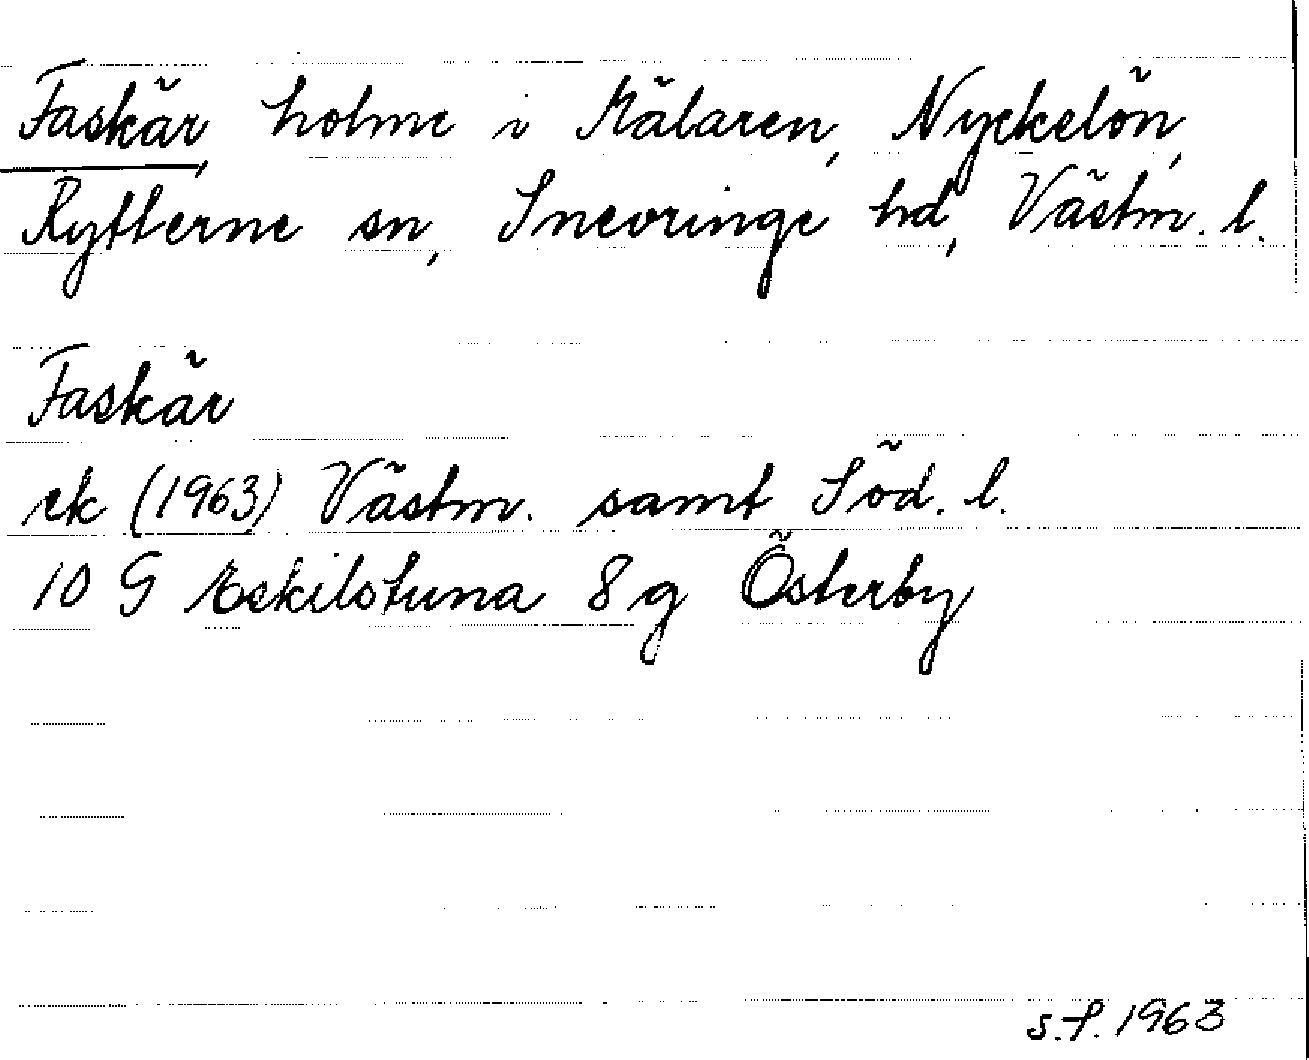 Faskär, holme i Mälaren, Nyckelön,
Rytterne sn, Snevringe hd, Västm. l.
Faskär
ek (1963) Västm. samt Söd. l.
10 G Eskilstuna 8 g Österby
s.f. 1963